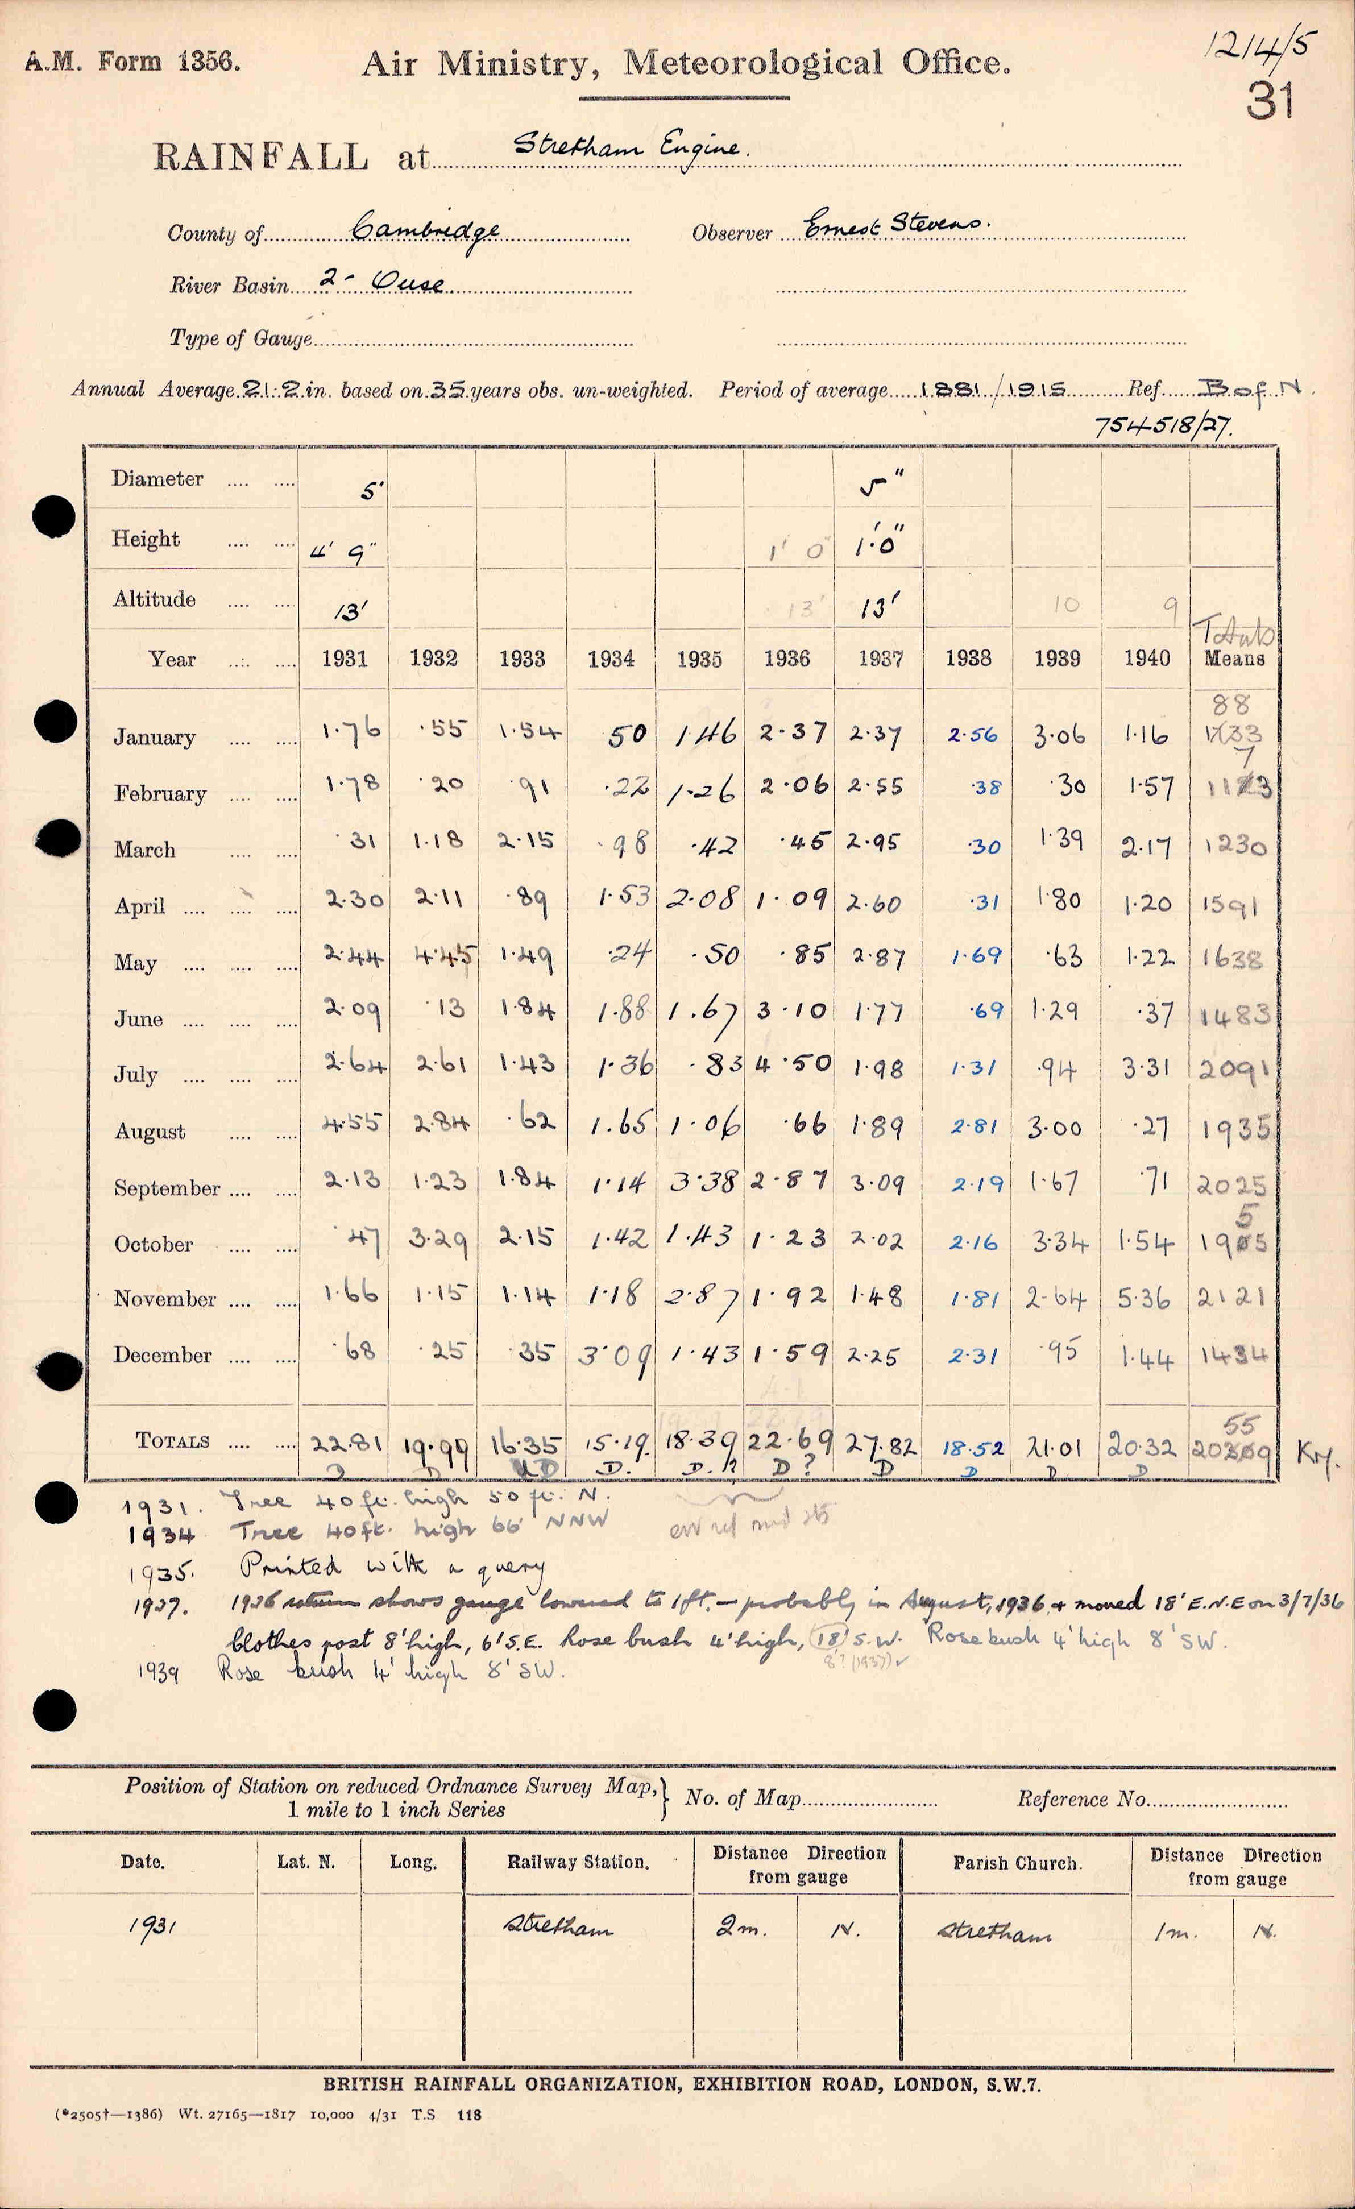 A.M. Form 1356. Air Ministry, Meteorological Office. 1214/5
31
RAINFALL at Stretham Engine.
County of Cambridge Observer Ernest Stevens.
River Basin 2- Ouse.
Type of Gauge
Annual Average 21.2 in. based on 35 years obs. un-weighted. Period of average 1881/1915 Ref. B of N.
754518/27.
Diameter .... .... 5" 5"
Height .... .... 4' 9" 1' 0" 1'.0"
Altitude .... .... 13' 13' 13' 10 9
Totals
Year .... .... 1931 1932 1933 1934 1935 1936 1937 1938 1939 1940 Means
88
January .... .... 1.76 .55 1.54 50 1.46 2.37 2.37 2.56 3.06 1.16
7
February .... .... 1.78 .20 .91 .22 1.26 2.06 2.55 .38 .30 1.57 1123
March .... .... .31 1.18 2.15 .98 .42 .45 2.95 .30 1.39 2.17 1230
April .... .... .... 2.30 2.11 .89 1.53 2.08 1.09 2.60 .31 1.80 1.20 1591
May .... .... .... 2.44 4.45 1.49 .24 .50 .85 2.87 1.69 .63 1.22 1638
June .... .... .... 2.09 .13 1.84 1.88 1.67 3.10 1.77 .69 1.29 .37 1483
July .... .... .... 2.64 2.61 1.43 1.36 .83 4.50 1.98 1.31 .94 3.31 2091
August .... .... 4.55 2.84 .62 1.65 1.06 .66 1.89 2.81 3.00 .27 1935
September .... .... 2.13 1.23 1.84 1.14 3.38 2.87 3.09 2.19 1.67 .71 2025
5
October .... .... .47 3.29 2.15 1.42 1.43 1.23 2.02 2.16 3.34 1.54 1905
November .... .... 1.66 1.15 1.14 1.18 2.87 1.92 1.48 1.81 2.64 5.36 2121
December .... .... .68 .25 .35 3.09 1.43 1.59 2.25 2.31 .95 1.44 1434
55
TOTALS .... .... 22.81 19.99 16.35 15.19 18.39 22.69 27.82 18.52 21.01 20.32
D D D D. D. D ? D D D D
1931. Tree 40 ft. high 50 ft. N.
1934 Tree 40ft. high 66' NNW
1935. Printed with a query
1937. 1936 return shows gauge lowered to 1ft. – probably in August, 1936, + moved 18' E.N.E on 3/7/36
Clothes post 8' high, 6' S.E. Rose bush 4' high, 18' S.W. Rose bush 4' high 8' SW.
8? (1937) ✓
1939 Rose bush 4' high 8' SW.
Position of Station on reduced Ordnance Survey Map, } No. of Map Reference No.
1 mile to 1 inch Series
Date. Lat. N. Long. Railway Station. Distance Direction from gauge Parish Church. Distance Direction from gauge
1931 Stretham 2m. N. Stretham 1m. N.
BRITISH RAINFALL ORGANIZATION, EXHIBITION ROAD, LONDON, S.W.7.
(*2505†—1386) Wt. 27165—1817 10,000 4/31 T.S 118